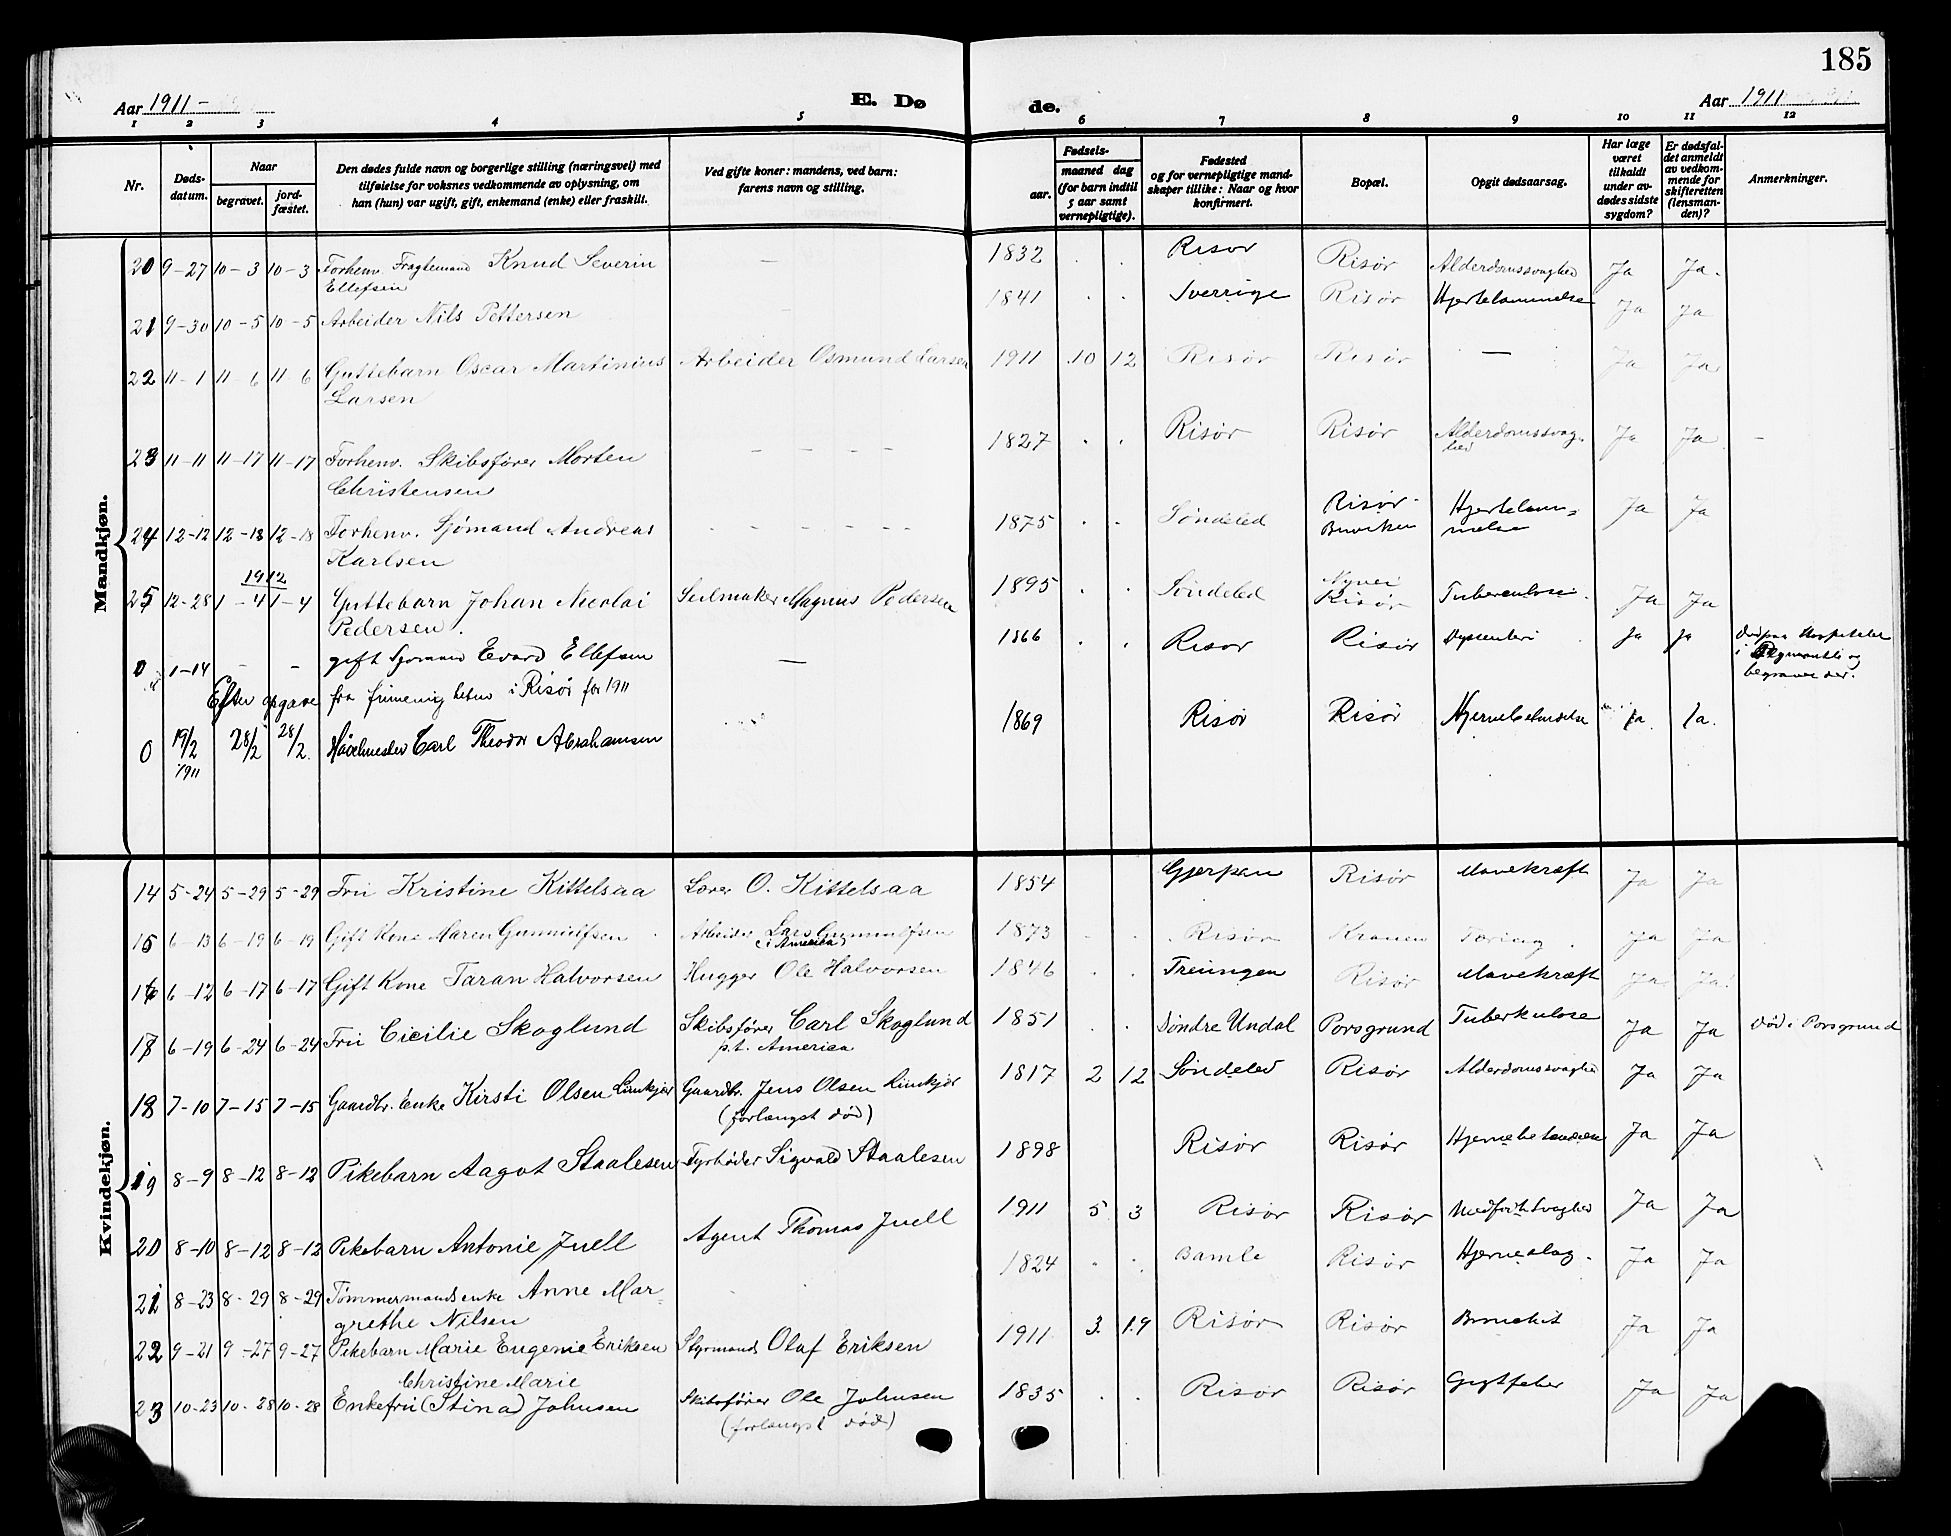 185
Aar 1911 - E. Dø de. Aar 1911
1 2 3 4 5 6 7 8 9 10 11 12
Nr. Døds-datum. Naar begravet. jord-fæstet. Den dødes fulde navn og borgerlige stilling (næringsvei) med tilføielse for voksnes vedkommende av oplysning, om han (hun) var ugift, gift, enkemand (enke) eller fraskilt. Ved gifte koner: mandens, ved barn: farens navn og stilling. Fødsels- aar. maaned dag (for barn indtil 5 aar samt vernepligtige). Fødested og for vernepligtige mand-skaper tillike: Naar og hvor konfirmert. Bopæl. Opgit dødsaarsag. Har læge været tilkaldt under av-dødes sidste sygdom? Er dødsfal-det anmeldt av vedkom-mende for skifteretten (lensman-den)? Anmerkninger.
Mandkjøn.
20 9-27 10-3 10-3 Forhenv. Fragtemand Knud Severin Ellefsen — 1832 . . Risør Risør Alderdomssvaghed Ja Ja.
21 9-30 10-5 10-5 Arbeider Nils Pettersen - 1841 . . Sverrige Risør Hjertelammelse Ja Ja
22 11-1 11 6 11 6 Guttebarn Oscar Martinius Larsen Arbeider Osmund Larsen 1911 10 12 Risør Risør — Ja Ja
23 11-11 11-17 11-17 Forhenv. Skibsfører Morten Christensen - - - - 1827 . . Risør Risør Alderdomssvag-hed Ja Ja -
24 12-12 12-18 12-18 Forhenv. Sjömand Andreas Karlsen - - - - - - 1875 . . Søndeled Risør- Buviken Hjertelam-melse Ja Ja
1912
25 12-28 1-4 1-4 Guttebarn Johan Nicolai Pedersen. Seilmaker Magnus Pedersen 1895 . . Söndeled Nyvei Risør Tuberculose. Ja Ja
0 1-14 - - gift Sjømand Evard Ellefsen — 1866 . . Risør Risør Dyssenteri Ja Ja Död paa Hospitalet i og begravet der.
Efter opgave fra frimenigheten i Risör for 1911
0 19/2 1911 28/2 28/2. Carl Theodor Abrahamsen 1869 Risör Risör Ja. Ja.
Kvindekjøn.
14 5-24 5-29 5-29 Frü Kristine Kittelsaa Lærer O. Kittelsaa 1854 Gjerpen Risør Mavekræft Ja Ja
15 6-13 6-19 6-19 Gift Kone Maren Gunnulfsen Arbeider Lars Gunnulfsen (i Amerika) 1873 . . Risør Kranen Tæring. Ja Ja
16 6-12 6-17 6-17 Gift Kone Taran Halvorsen Hugger Ole Halvorsen 1846 . . Treungen Risør Mavekræft Ja Ja
17 6-19 6-24 6-24 Frü Cicilie Skoglund Skibsfører Carl Skoglund p.t. America 1851 . . Söndre Undal Porsgrund Tuberkulose Ja Ja Död i Porsgrund
18 7-10 7-15 7-15 Gaardbr. Enke Kirsti Olsen Limkjær Gaardbr. Jens Olsen Limkjær (forlængst död) 1817 2 12 Søndeled Risør Alderdomssvaghed Ja Ja
19 8-9 8-12 8-12 Pikebarn Aagot Staalesen Fyrböder Sigvald Staalesen 1898 Risør Risør Ja Ja
20 8-10 8-12 8-12 Pikebarn Antonie Juell Agent Thomas Juell 1911 5 3 Risør Risør Medfødt Svaghed Ja Ja
21 8-23 8-29 8-29 Tømmermandsenke Anne Mar-grethe Nilsen 1824 . . Bamle Risør Hjerneslag. Ja Ja
22 9-21 9-27 9-27 Pikebarn Marie Eugenie Eriksen Styrmand Olaf Eriksen 1911 3. 19 Risør Risør Bronchit Ja Ja
Christine Marie
23 10-23 10-28 10-28 Enkefrü (Stina) Johnsen Skibsfører Ole Johnsen (forlængst död) 1835 . . Risør Risør Gigtfeber Ja Ja